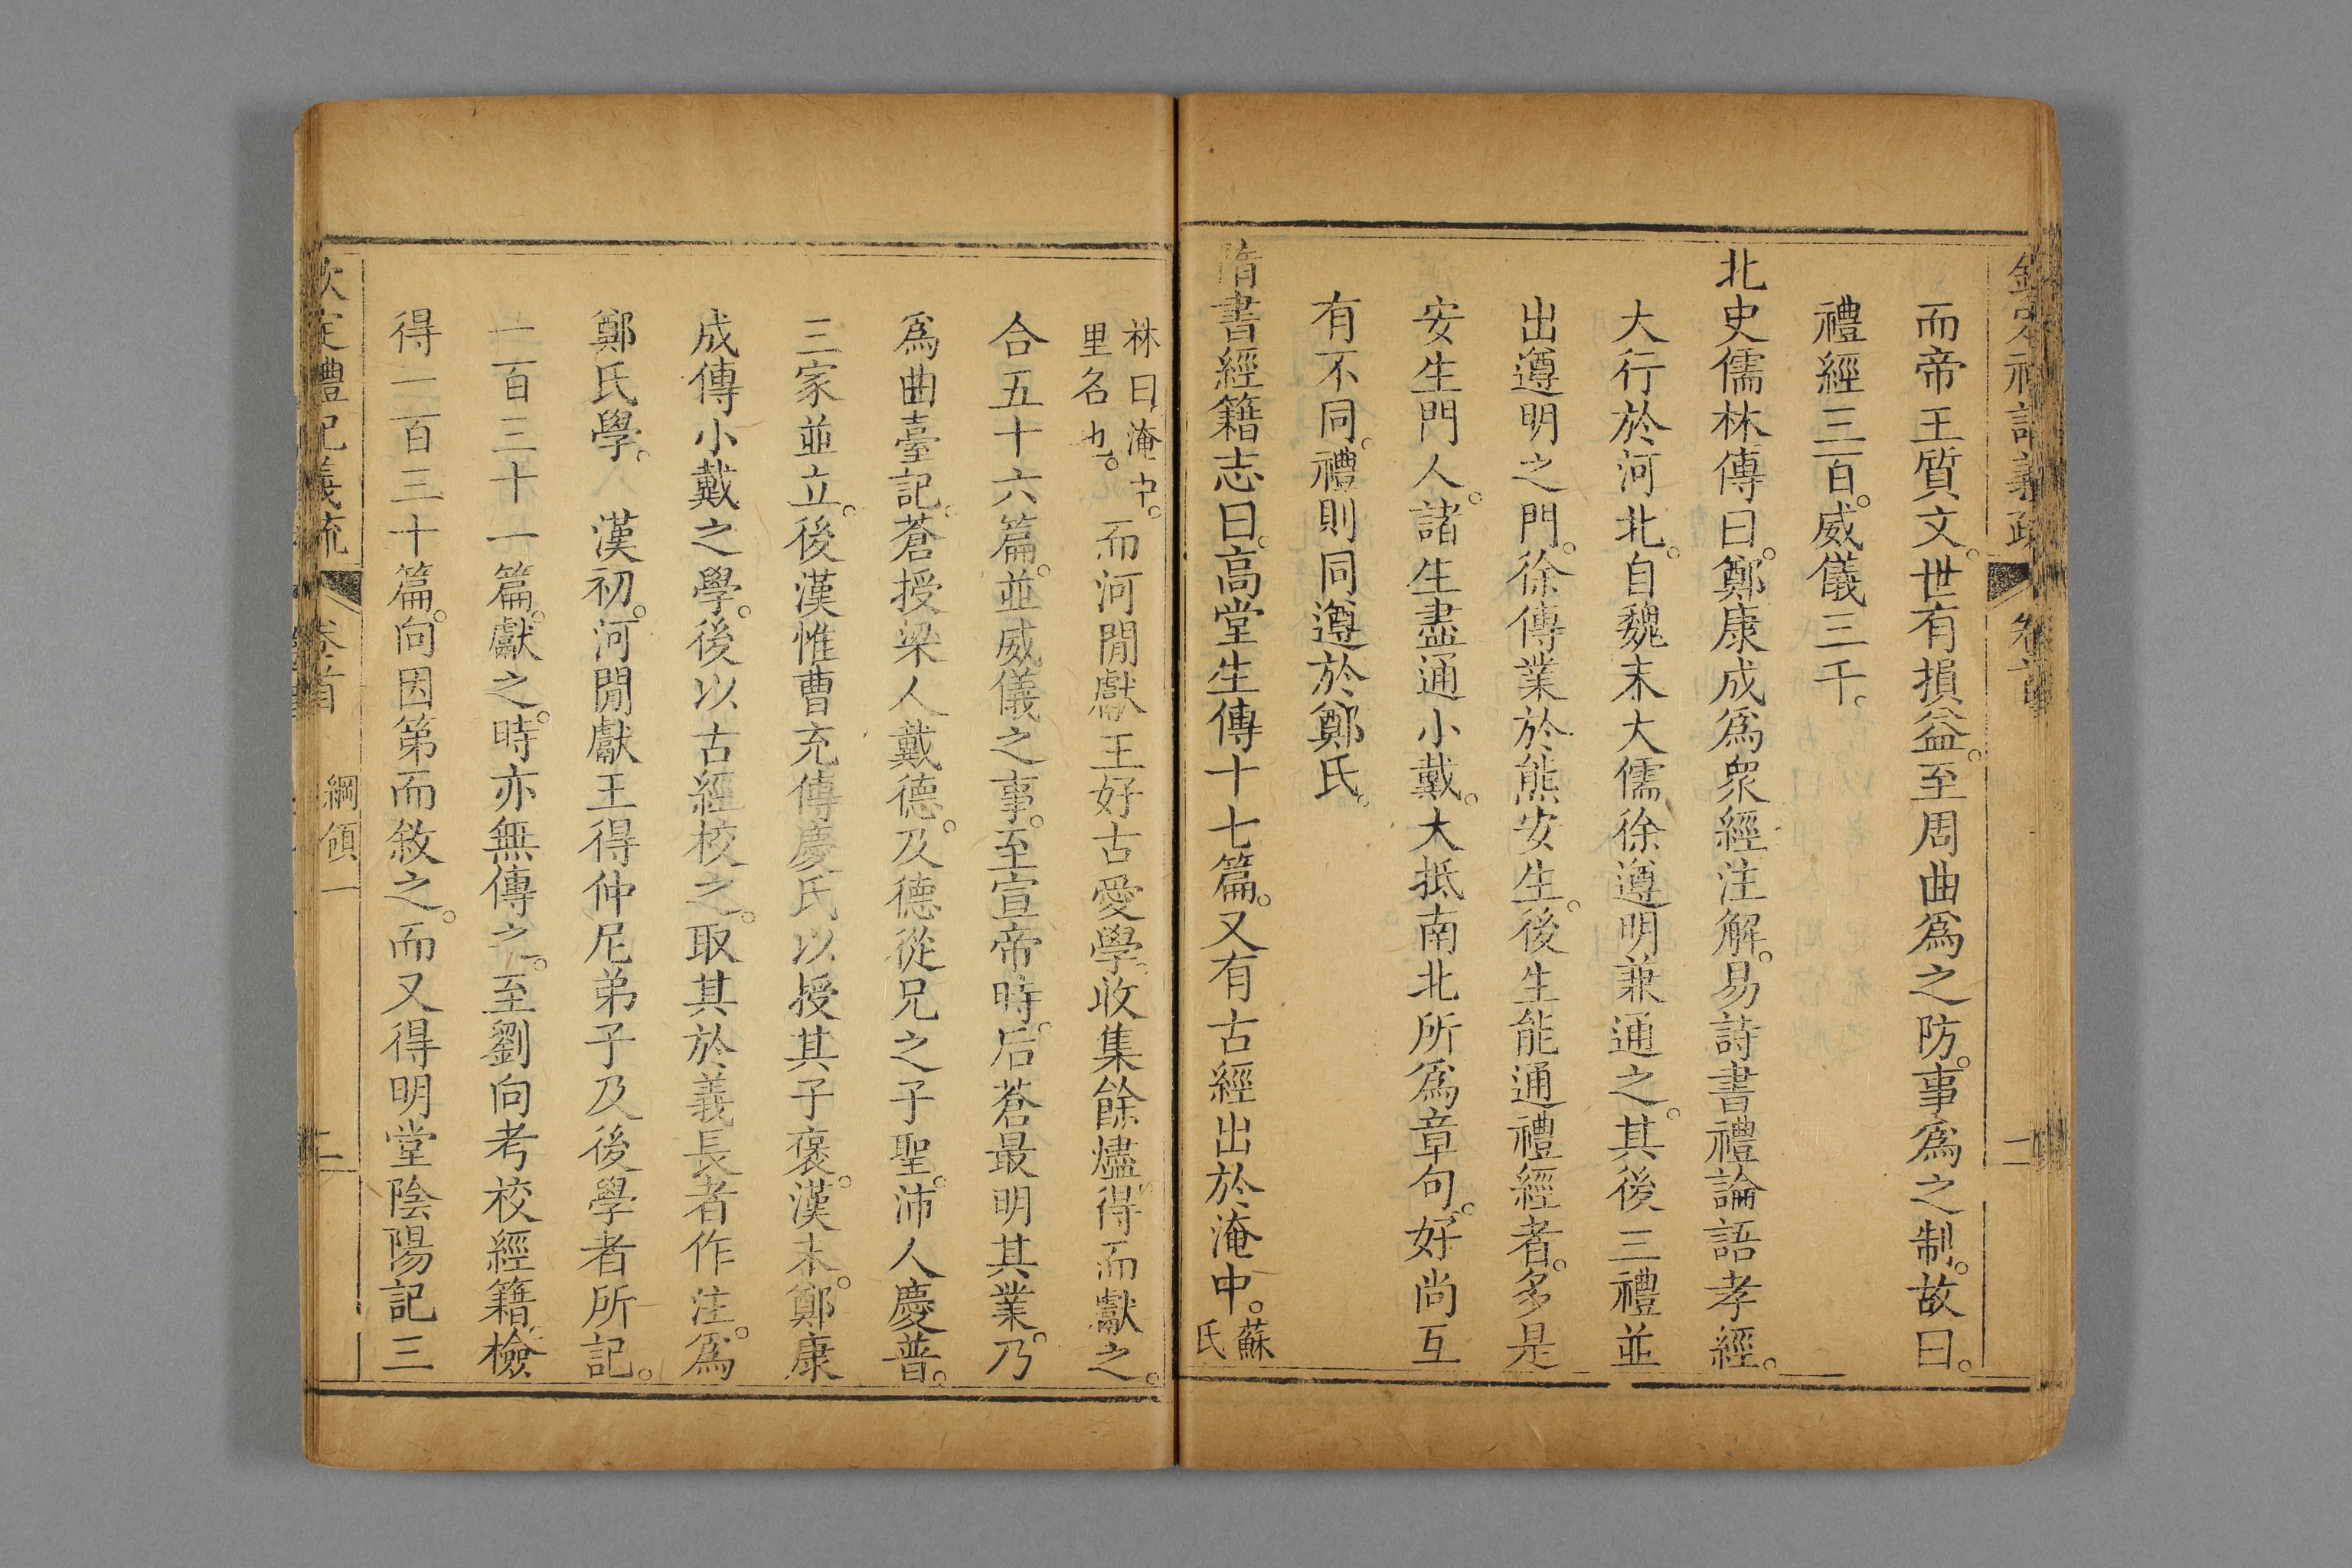 欽定禮記義疏 卷首 二
而帝王質文。世有損益。至周曲爲之防。事爲之制。故曰。
禮經三百。威儀三千。
北史儒林傳曰。鄭康成爲衆經注解。易詩書禮論語孝經。
大行於河北。自魏末大儒徐遵明兼通之。其後三禮並
出遵明之門。徐傳業於熊安生。後生能通禮經者。多是
安生門人。諸生盡通小戴。大抵南北所爲章句。好尚互
有不同。禮則同遵於鄭氏。
隋書經籍志曰。高堂生傳十七篇。又有古經出於淹中。蘇
氏
林曰淹中。
里名也。
而河閒獻王好古愛學。收集餘燼。得而獻之。
合五十六篇。並威儀之事。至宣帝時。后蒼最明其業。乃
爲曲臺記。蒼授梁人戴德。及德從兄之子聖。沛人慶普。
三家並立。後漢惟曹充傳慶氏以授其子褒。漢末。鄭康
成傳小戴之學。後以古經校之。取其於義長者作注。爲
鄭氏學。 漢初。河閒獻王得仲尼弟子及後學者所記。
一百三十一篇。獻之。時亦無傳之。至劉向考校經籍。檢
得一百三十篇。向因第而敘之。而又得明堂陰陽記三
欽定禮記義疏 卷首 綱領一 二